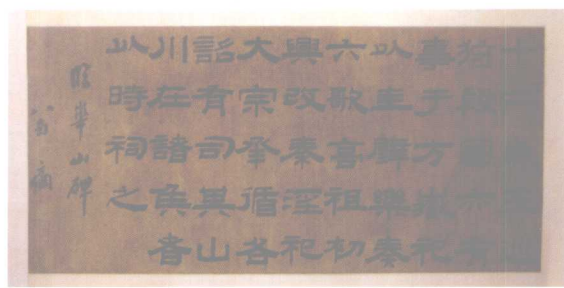 十二歲王巡
狩殷國亦有
事于方嶽祀
以圭璧樂奏
六歌高祖初
興改秦淫祀
大宗承循各
詔有司其山
川在諸侯者
以時祠之
臨華山碑